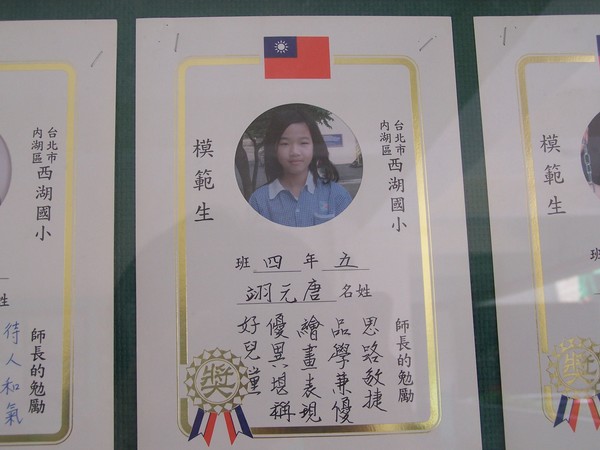 台北市
內湖區
西湖國小
模範生
五年四班
姓名唐元翊
師長的勉勵
思路敏捷
品學兼優
繪畫表現
優異堪稱
好兒童
獎
台北市
內湖區
西湖國小
姓
師長的勉勵
待人和氣
模範生
班
獎